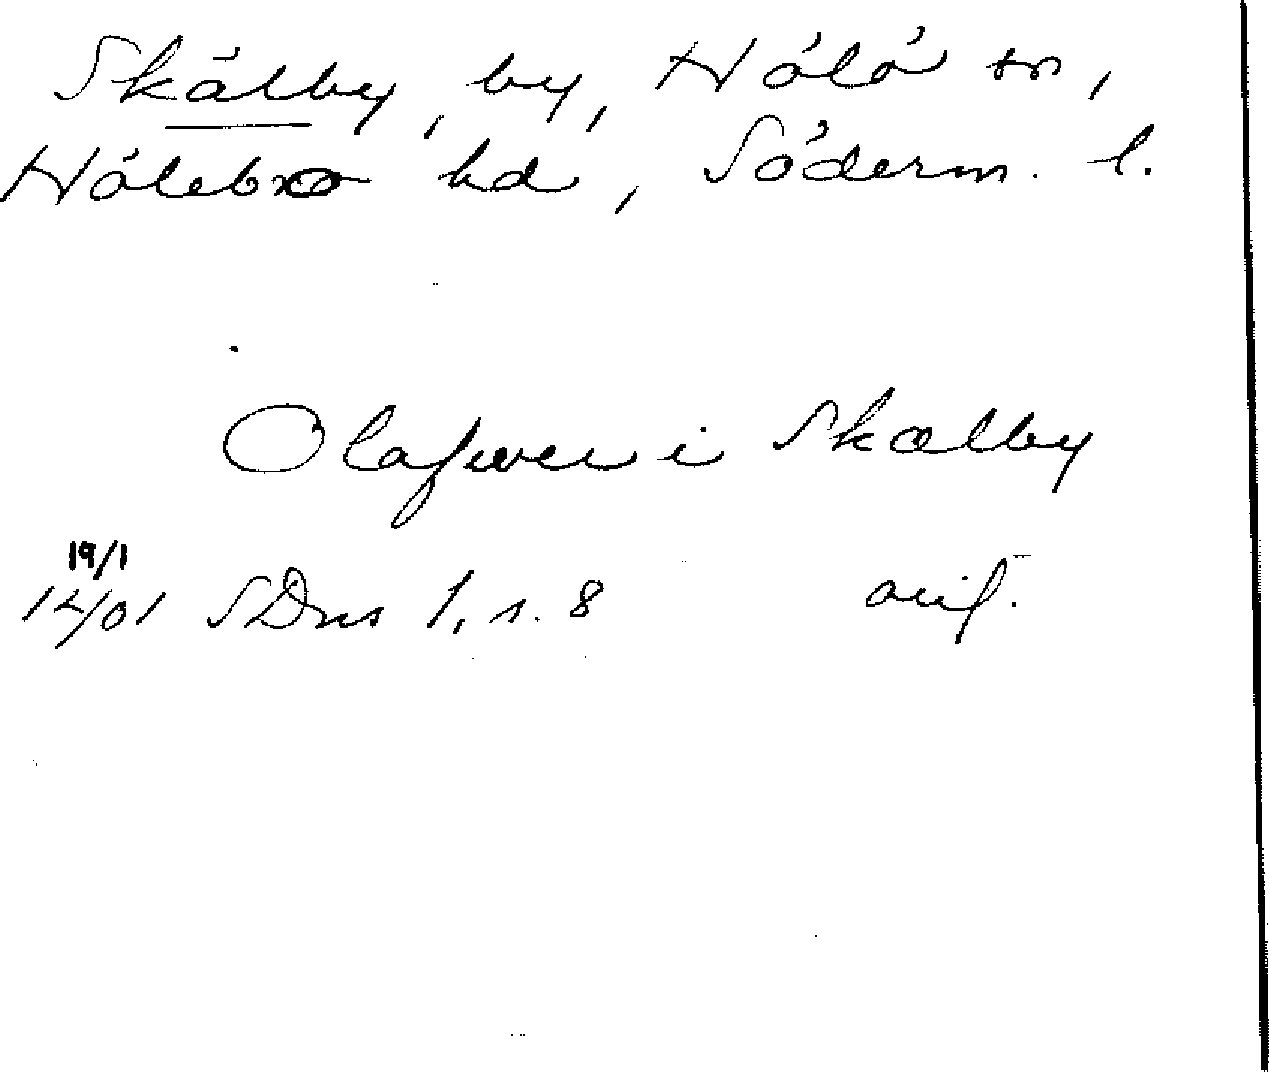 Skälby, by, Hölö sn,
Hölebo hd, Söderm. l.
Olafwer i Skælby
19/1
1401 SDns 1, s. 8 orig.